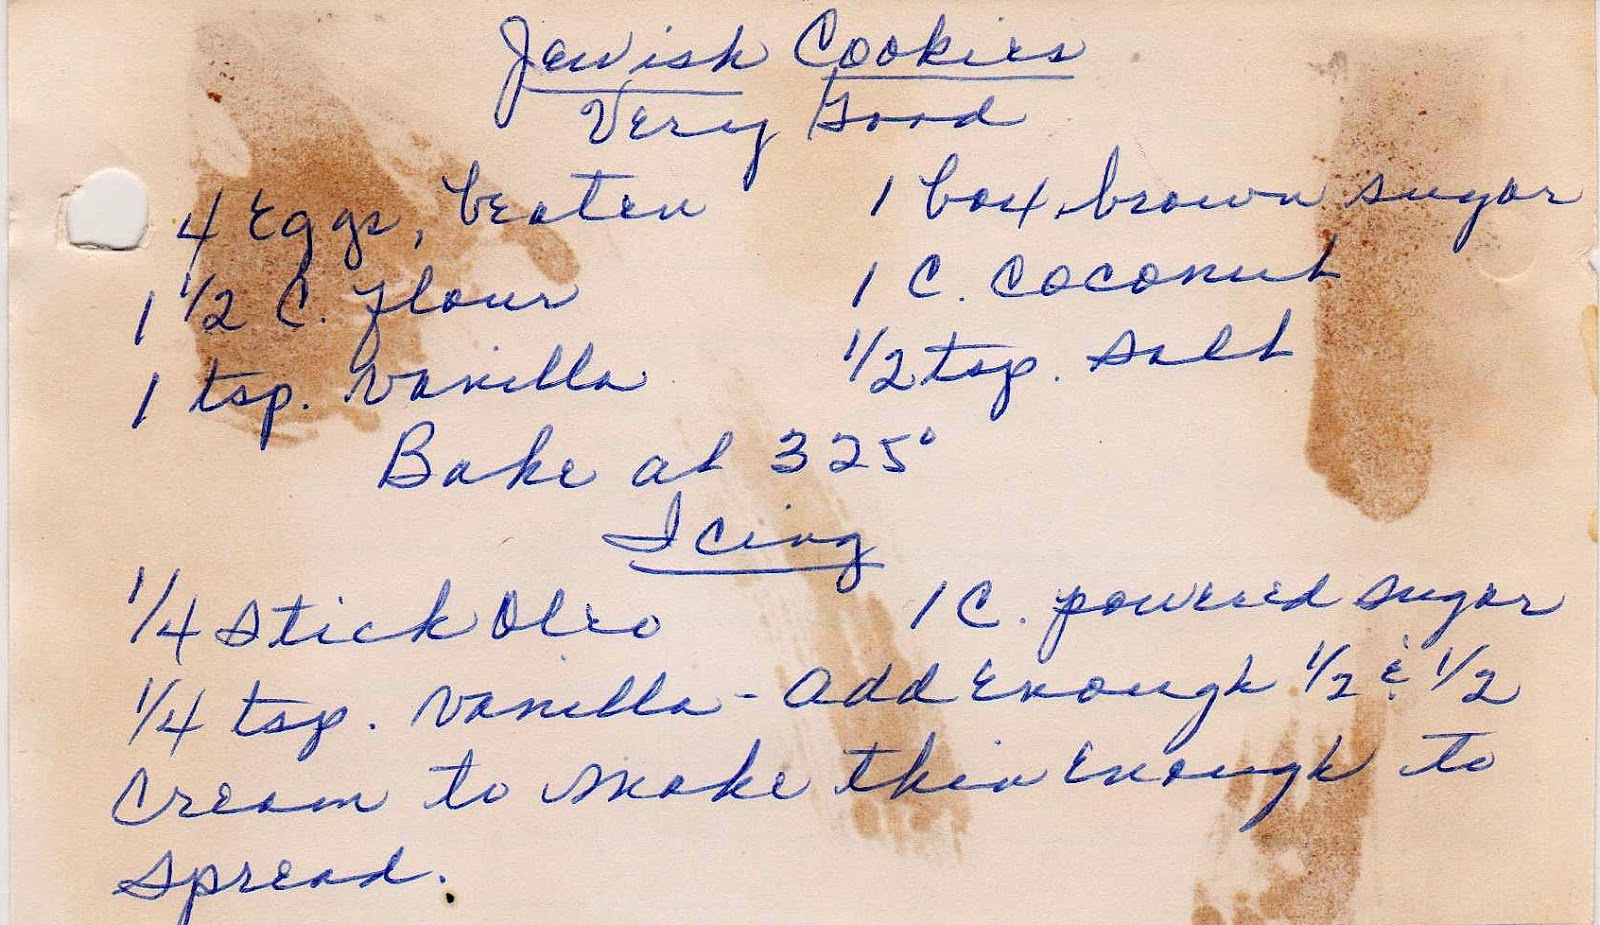 Jewish Cookies
Very Good
4 Eggs, beaten 1 box brown sugar
1 1/2 C. flour 1 C. coconut
1 tsp. vanilla 1/2 tsp. salt
Bake at 325°
Icing
1/4 stick Oleo 1 C. powered sugar
1/4 tsp. vanilla - add enough 1/2 & 1/2
cream to make thin enough to
spread.